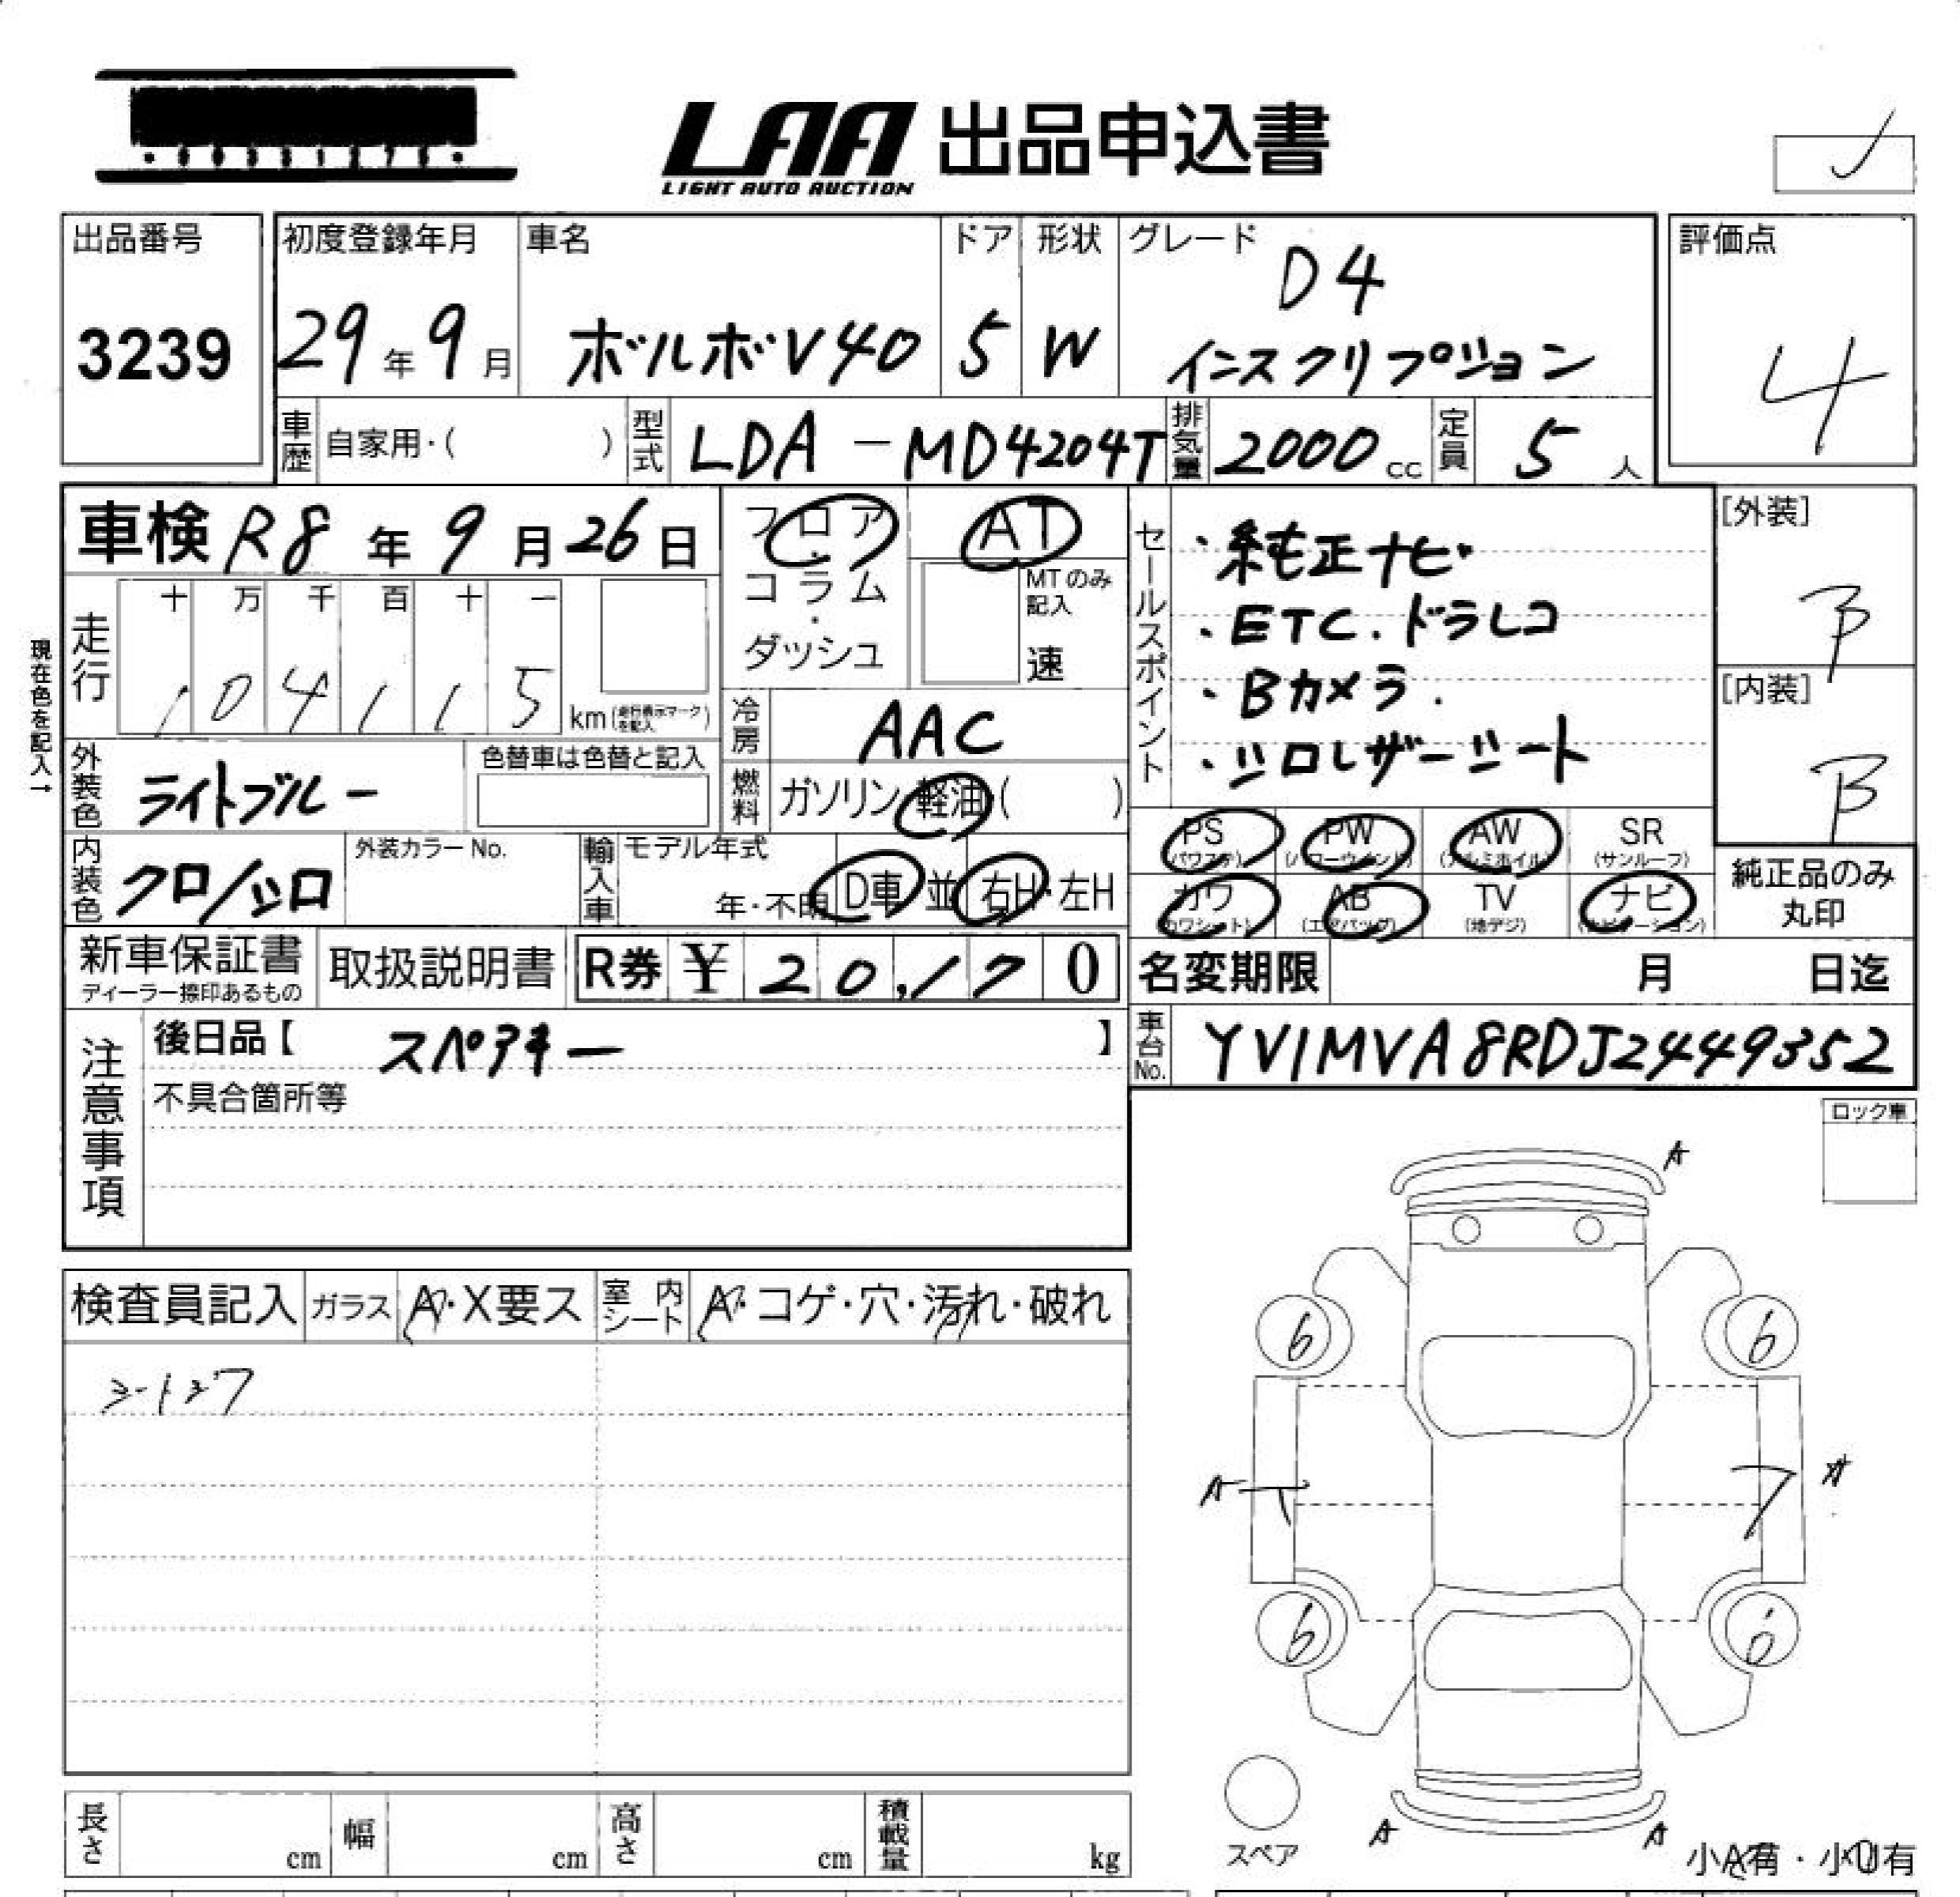 LAA 出品申込書
LIGHT AUTO AUCTION
出品番号
3239
初度登録年月
29年9月
車名
ボルボV40
ドア
5
形状
W
グレード
D4
インスクリプション
評価点
4
車歴 自家用・( )
型式 LDA-MD4204T
排気量 2000 cc
定員 5 人
車検 R8年9月26日
フロア・コラム・ダッシュ
AT
MTのみ記入
速
走行 十 万 千 百 十 一
104115 km(走行表示マークを記入)
現在色を記入→
冷房 AAC
外装色 ライトブルー
色替車は色替と記入
燃料 ガソリン 軽油 ( )
内装色 クロ/シロ
外装カラーNo.
輸入車 モデル年式
年・不明
D車 並
右H・左H
セールスポイント
・純正ナビ
・ETC.ドラレコ
・Bカメラ.
・シロレザーシート
[外装]
B
[内装]
B
PS (パワステ)
PW (パワーウインド)
AW (アルミホイル)
SR (サンルーフ)
カワ (カワシート)
AB (エアバッグ)
TV (地デジ)
ナビ (ナビゲーション)
純正品のみ丸印
新車保証書
ディーラー捺印あるもの
取扱説明書
R券 ¥ 20,170
名変期限 月 日迄
注意事項
後日品【 スペアキー 】
不具合箇所等
車台No. YV1MVA8RDJ2449352
ロック車
検査員記入
ガラス A・X要ス
室内シート A・コゲ・穴・汚れ・破れ
A
6 6
A A
6 6
スペア
A A
小A有・小U有
長さ cm
幅 cm
高さ cm
積載量 kg